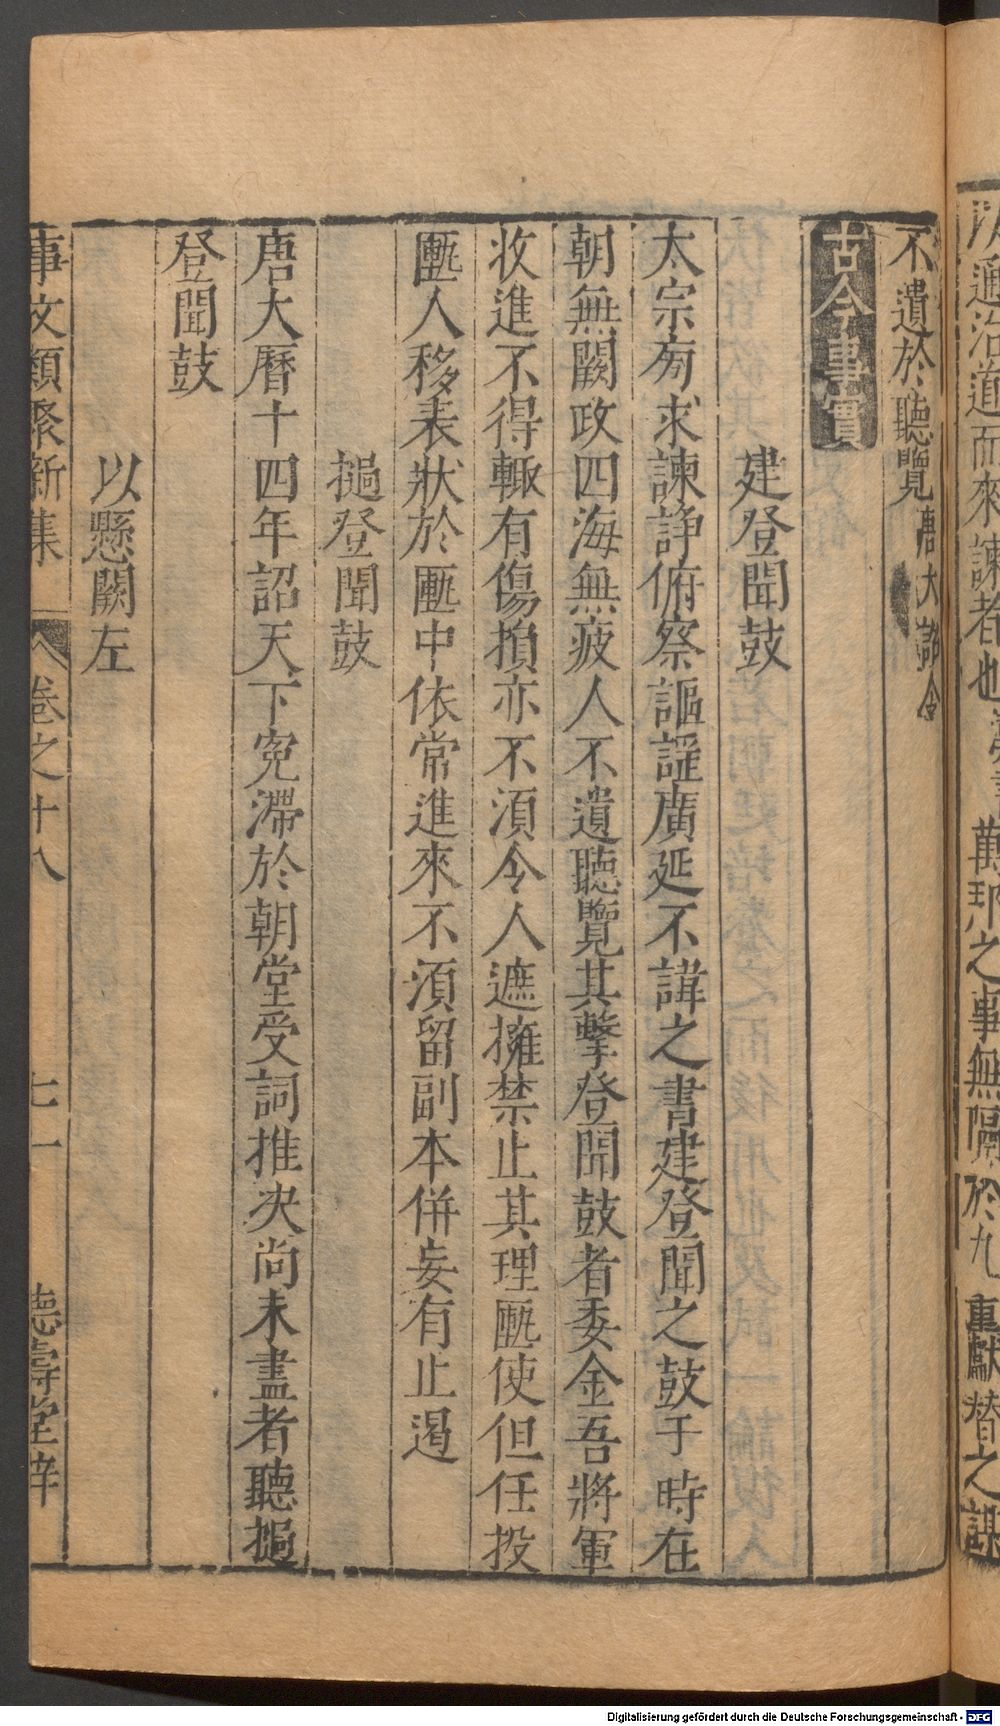 以通治道而來諫者也
萬邦之事無隔於九重獻替之謀
不遺於聽覽唐大詔令
古今事實
建登聞鼓
太宗旁求諫諍俯察謳謡廣延不諱之書建登聞之鼓于時在
朝無闕政四海無疲人不遺聽覽其擊登聞鼓者委金吾將軍
收進不得輙有傷損亦不須令人遮擁禁止其理匭使但任投
匭人移表狀於匭中依常進來不須留副本併妄有止遏
撾登聞鼓
唐大曆十四年詔天下寃滯於朝堂受詞推决尚未盡者聽撾
登聞鼓
以懸闕左
事文類聚新集 卷之十八 七一 德壽堂梓
Digitalisierung gefördert durch die Deutsche Forschungsgemeinschaft - DFG